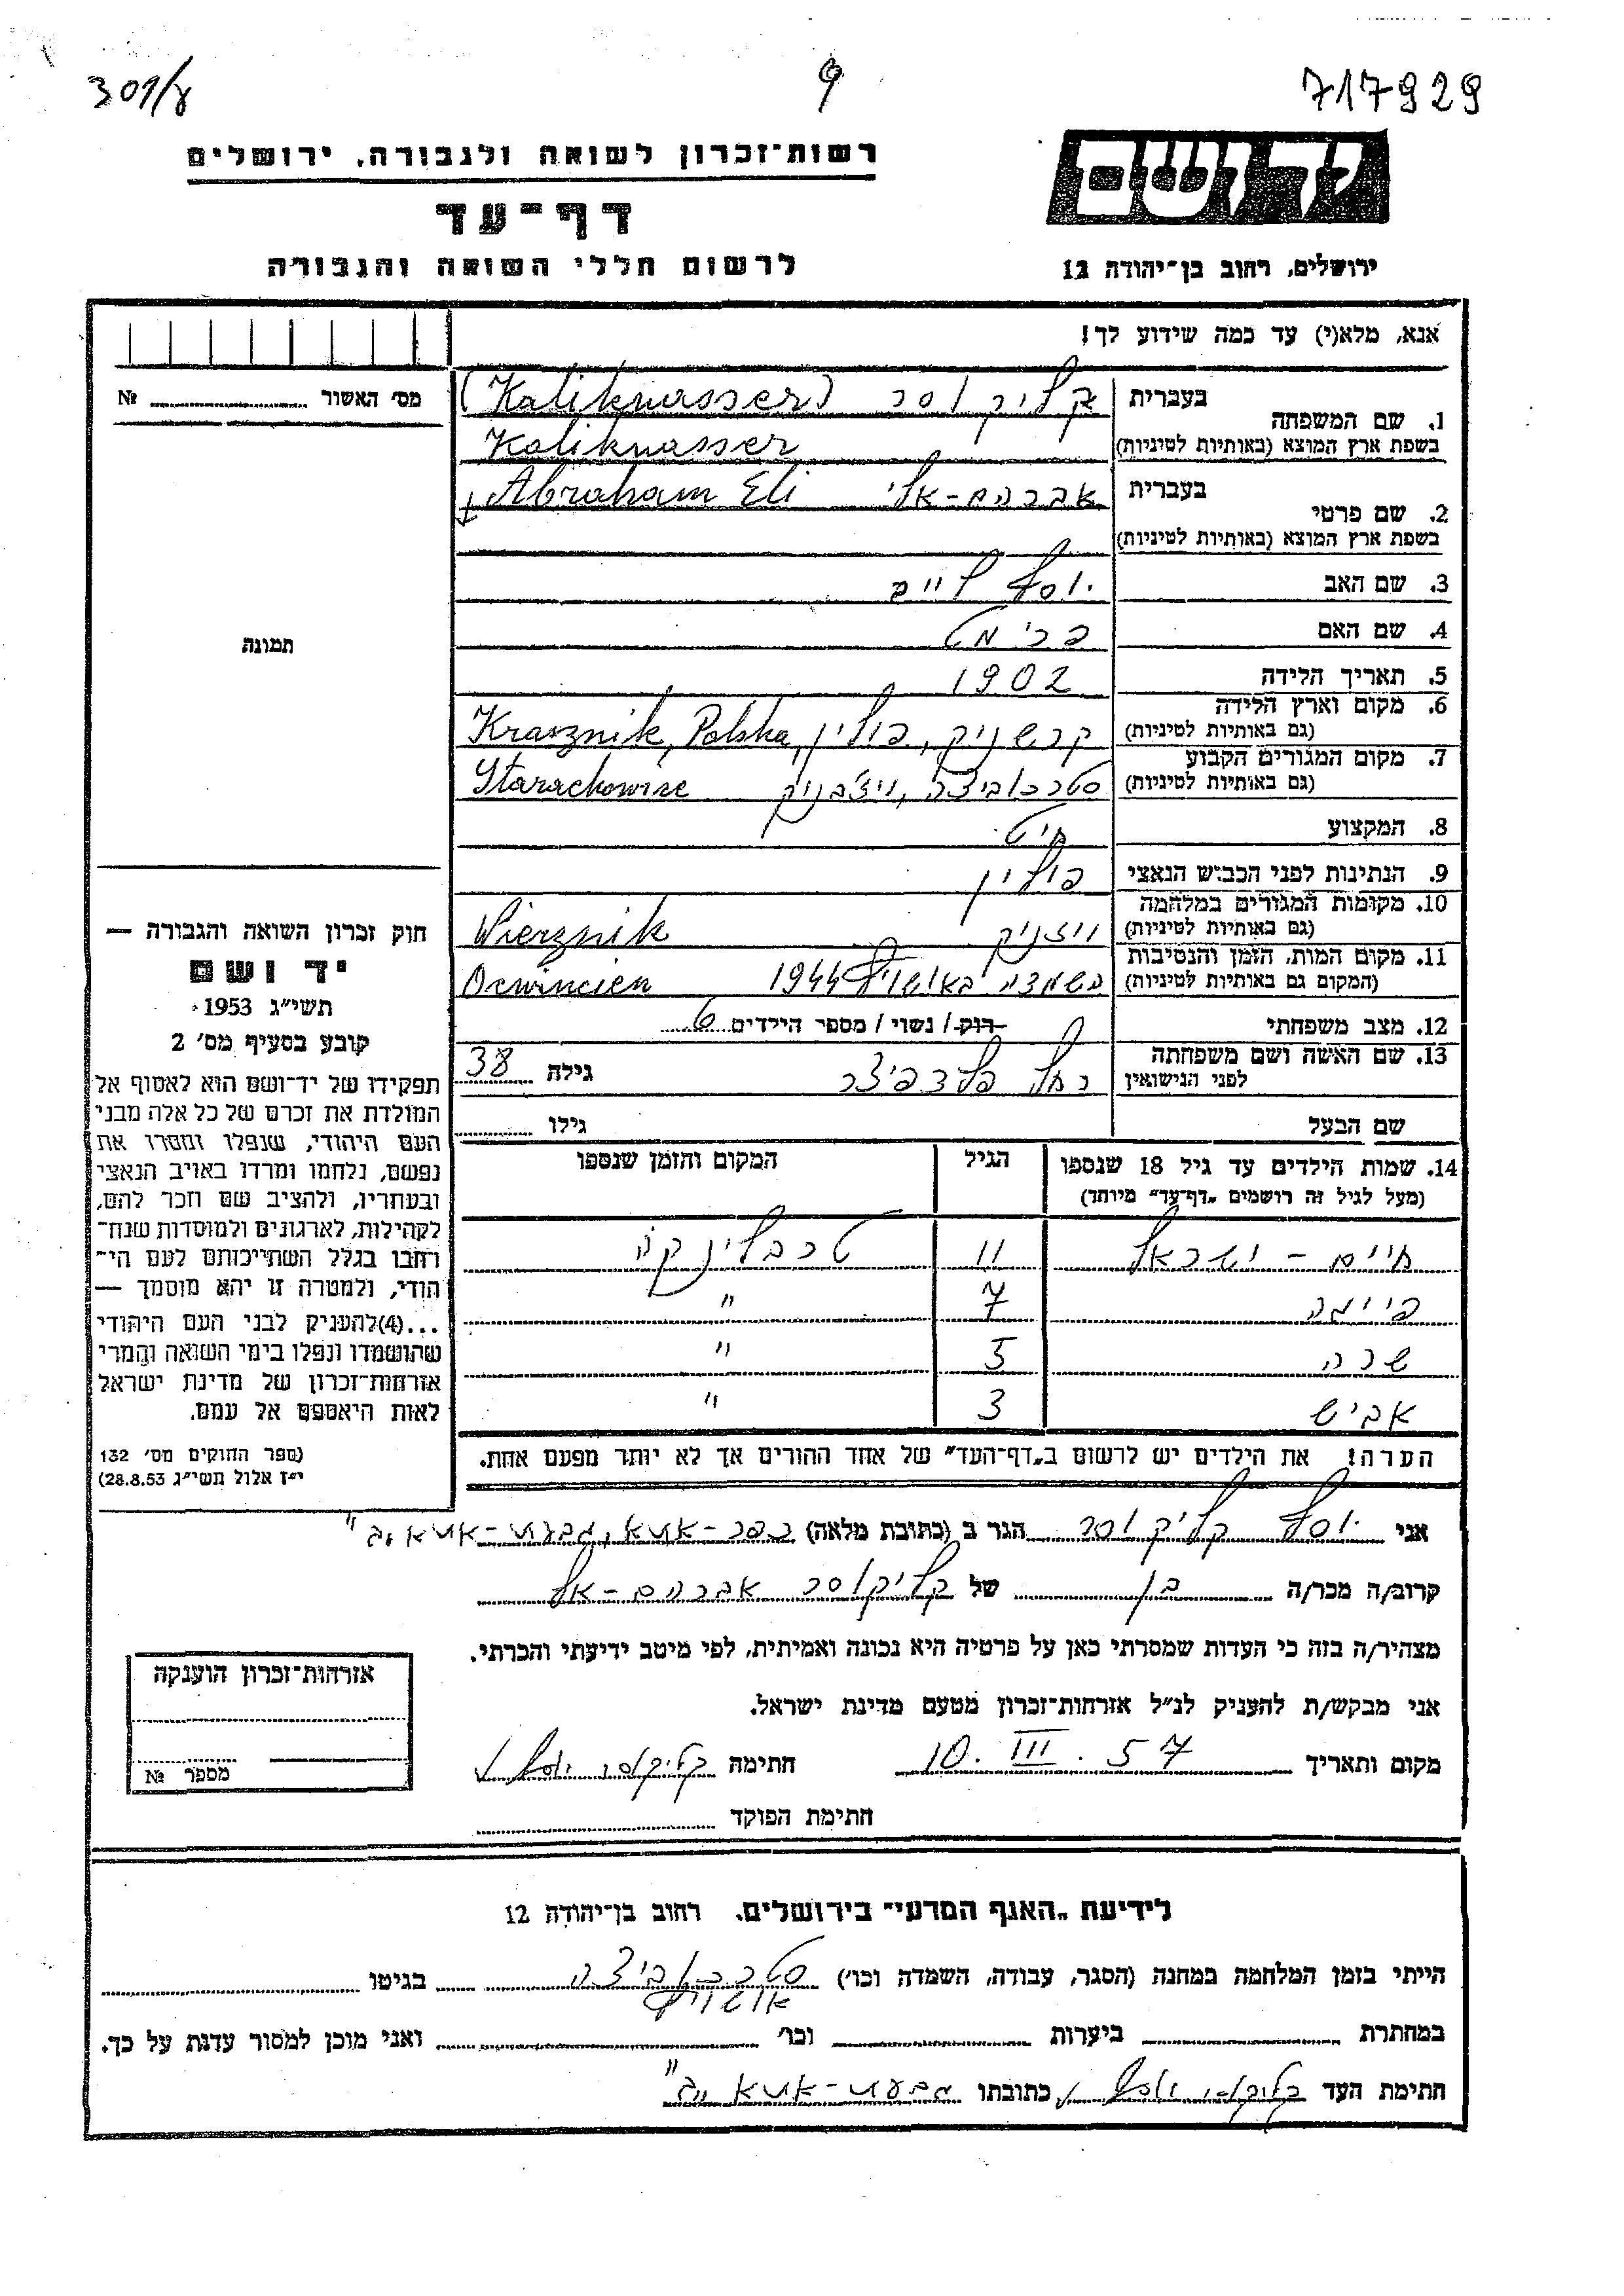 301/8
9
717929
רשות־זכרון לשואה ולגבורה, ירושלים
דף־עד
לרשום חללי השואה והגבורה
יד ושם
ירושלים, רחוב בן־יהודה 12
אנא, מלא(י) עד כמה שידוע לך!
מס׳ האשור № 
תמונה
1. שם המשפחה
בעברית קליקוסר (Kalikwasser)
בשפת ארץ המוצא (באותיות לטיניות) Kalikwasser
2. שם פרטי
בעברית אברהם-אלי Abraham Eli
בשפת ארץ המוצא (באותיות לטיניות)
3. שם האב יוסף
4. שם האם
5. תאריך הלידה 1902
6. מקום וארץ הלידה
(גם באותיות לטיניות) קרשניק, פולין, Krasznik, Polska
7. מקום המגורים הקבוע
(גם באותיות לטיניות) סטרכוביצה, ויז'בניק Starachowise
8. המקצוע חיט
9. הנתינות לפני הכבוש הנאצי פולין
10. מקומות המגורים במלחמה
(גם באותיות לטיניות) Wierznik
11. מקום המות, הזמן והנסיבות
(המקום גם באותיות לטיניות) השמדה באושויץ 1944
12. מצב משפחתי רוק / נשוי / מספר הילדים 6
13. שם האשה ושם משפחתה
לפני הנישואין רחל גילה 38
שם הבעל גילו
14. שמות הילדים עד גיל 18 שנספו
(מעל לגיל זה רושמים „דף־עד” מיוחד)
הגיל
המקום והזמן שנספו
חיים - ישראל 11 טרבלינקה
7 "
שרה 5 "
אביש 3 "
הערה! את הילדים יש לרשום ב„דף־העד” של אחד ההורים אך לא יותר מפעם אחת.
חוק זכרון השואה והגבורה —
יד ושם
תשי״ג 1953
קובע בסעיף מס׳ 2
תפקידו של יד־ושם הוא לאסוף אל
המולדת את זכרם של כל אלה מבני
העם היהודי, שנפלו ומסרו את
נפשם, נלחמו ומרדו באויב הנאצי
ובעוזריו, ולהציב שם וזכר להם,
לקהילות, לארגונים ולמוסדות שנח־
רחבו בגלל השתייכותם לעם הי־
הודי, ולמטרה זו יהא מוסמך —
...(4)להעניק לבני העם היהודי
שהושמדו ונפלו בימי השואה והמרי
אזרחות־זכרון של מדינת ישראל
לאות היאספם אל עמם.
(ספר החוקים מס׳ 132
י״ז אלול תשי״ג 28.8.53)
אני יוסף קליקוסר הגר ב (כתובת מלאה) כפר-אתא, גבעת-אתא
קרוב/ה מכר/ה בן של קליקוסר אברהם-אלי
מצהיר/ה בזה כי העדות שמסרתי כאן על פרטיה היא נכונה ואמיתית, לפי מיטב ידיעתי והכרתי.
אני מבקש/ת להעניק לנ״ל אזרחות־זכרון מטעם מדינת ישראל.
מקום ותאריך 10. III. 57 חתימה קליקוסר יוסף
חתימת הפוקד
אזרחות־זכרון הוענקה
מספר №
לידיעת „האגף המדעי” בירושלים. רחוב בן־יהודה 12
הייתי בזמן המלחמה במחנה (הסגר, עבודה, השמדה וכו׳) סטרכוביצה בגיטו
אושויץ
במחתרת ביערות וכו׳ ואני מוכן למסור עדות על כך.
חתימת העד קליקוסר יוסף כתובתו גבעת-אתא